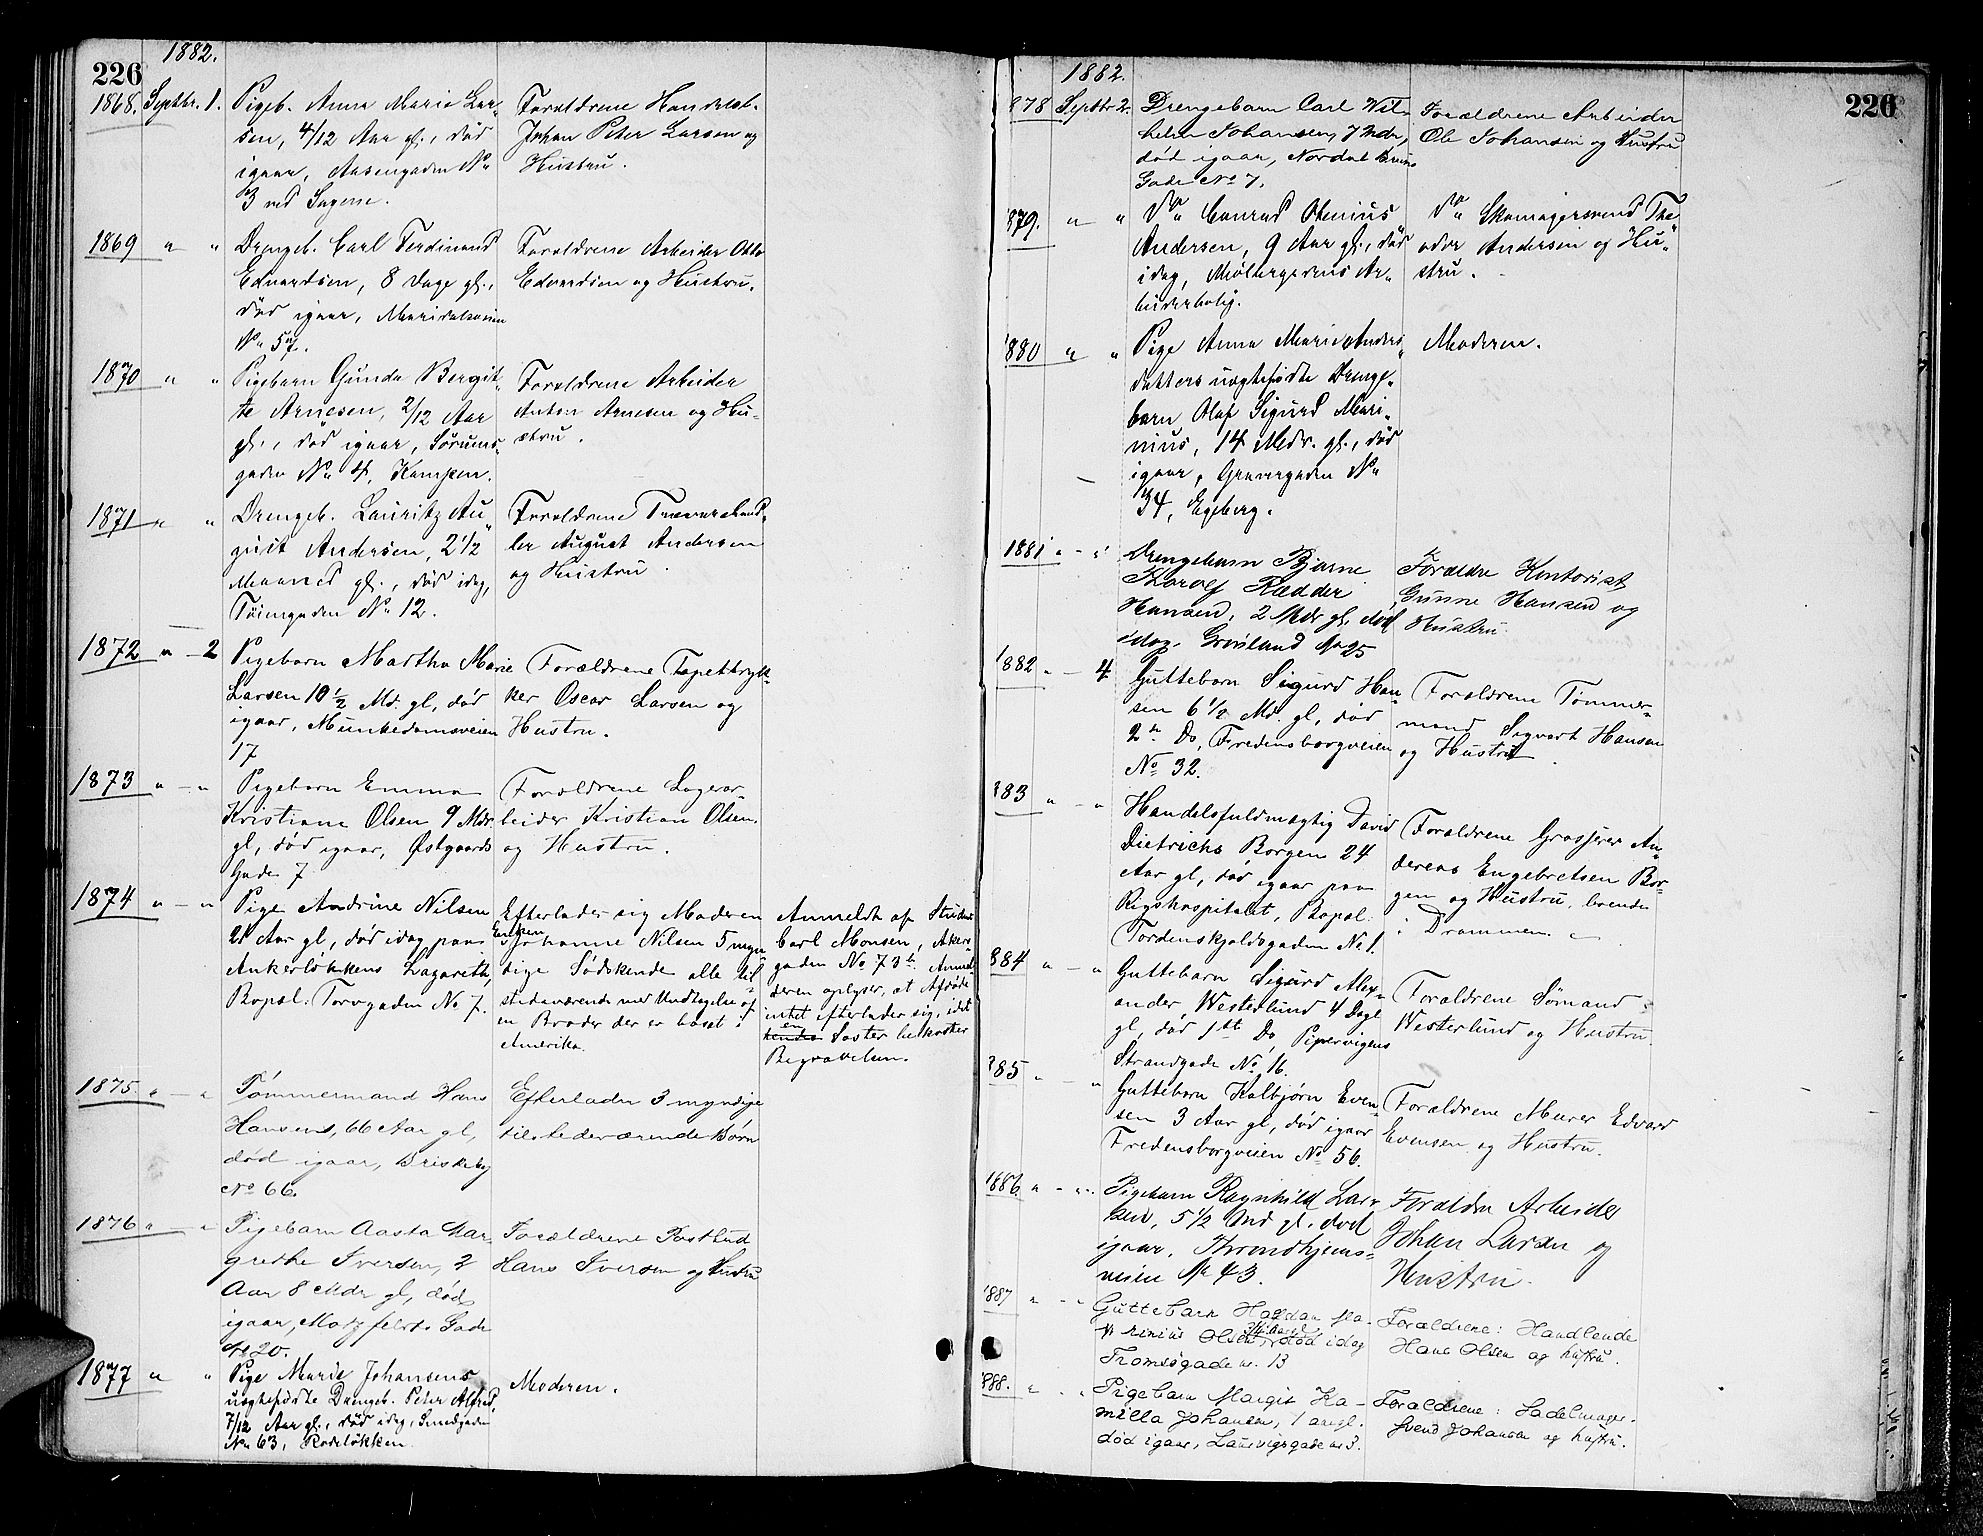 226
1882.
1868. Septbr. 1. Pigeb. Anna Marie Lar-
sen, 4/12 Aar gl., død
igaar, Aasengaden No
3 ved Sagene.
Forældrene Handelsb.
Johan Peter Larsen og
Hustru.
1869 " " Drengeb. Carl Ferdinand
Edvardsen, 8 Dage gl.,
død igaar, Maridalsveien
No 57.
Forældrene Arbeider Otto
Edvardsen og Hustru.
1870 " " Pigebarn Gunda Bergit-
te Arnesen, 2/12 Aar
gl., død igaar, Sørums-
gaden No 4, Kampen.
Forældrene Arbeider
Anton Arnesen og Hu-
stru.
1871 " " Drengeb. Lauritz Au-
gust Andersen, 2 1/2
Maaned gl., død idag,
Tøiengaden No 12.
Forældrene
August Andersen
og Hustru.
1872 " - 2 Pigebarn Martha Marie
Larsen 10 1/2 Md. gl, død
igaar, Munkedamsveien
17
Forældrene Tapettryk-
ker Oscar Larsen og
Hustru.
1873 " - " Pigebarn Emma
Kristiane Olsen 9 Mdr.
gl, død igaar, Østgaards
Gade 7
Forældrene Lagerar-
beider Kristian Olsen
og Hustru.
1874 " - " Pige Andrine Nilsen
21 Aar gl, død idag paa
Ankerløkkens Lazareth,
Bopæl: Torvgaden No 7.
Efterlader sig Moderen
Enken
Johanne Nilsen 5 myn-
dige Sødskende alle til
stedeværende med Undtagelse af
en Broder der er bosat i
Amerika.
Anmeldt af
Carl Monsen, Akers-
gaden No 73b. Anmel-
deren oplyser, at Afdøde
intet efterlader sig, idet
en
hendes Søster bekoster
Begravelsen.
1875. " - " Tømmermand Hans
Hansen, 66 Aar gl,
død igaar, Briskeby
No 66.
Efterlader 3 myndige
tilstedeværende Børn
1876 " - " Pigebarn Aasta Mar-
grethe Iversen, 2
Aar 8 Mdr gl, død
igaar, Motzfeldts Gade
No 20.
Forældrene Postbud
Hans Iversen og Hustru
1877 " " Pige Marie Johansens
uægtefødte Drengeb. Peter Alfred,
7/12 Aar gl., død idag, Smedgaden
No 63, Rodeløkken.
Moderen.
226
1882.
878 Septbr 2. Drengebarn Carl Wil-
helm Johansen, 7 Mdr,
død igaar, Nordal Bruns
Gade No 7.
Forældrene Arbeider
Ole Johansen og Hustru
879. " " Do Conrad
Andersen, 9 Aar gl., død
idag, Møllergadens Ar-
beiderbolig.
Do Skomagersvend The-
odor Andersen og Hu-
stru.
1880 " " Pige Anna Marie Anders-
datters uægtefødte Drenge-
barn Olaf Sigurd Mari-
nius, 14 Mdr. gl., død
igaar, Gravergaden No
34, Egeberg.
Moderen.
1881 " - " Drengebarn Bjarne
Thoralf Rædder
Hansen, 2 Mdr gl, død
idag. Grønland No 25
Forældre Kontorist
Gunne Hansen og
Hustru.
1882 " - 4 Guttebarn Sigurd Han-
sen 6 1/2 Md. gl, død
2den Do, Fredensborgveien
No 32.
Forældrene Tømmer-
mand Sigvart Hansen
og Hustru.
883 " - " Handelsfuldmægtig David
Dietrichs Borgen 24
Aar gl, død igaar paa
Rigshospitalet, Bopæl:
Tordenskjoldsgaden No 1.
Forældrene Grosserer An-
dereas Engebretsen Bor-
gen og Hustru, boende
i Drammen.
884 " - " Guttebarn Sigurd Alex-
ander, Westerlund 4 Dage
gl, død 1ste Do, Pipervigens
Strandgade No 16.
Forældrene Sømand
Westerlund og Hustru.
885 " - " Guttebarn Kolbjørn Even-
sen 3 Aar gl, død igaar
Fredensborgveien No 56.
Forældrene Murer Edvard
Evensen og Hustru.
1886 " - " Pigebarn Ragnhild Lar-
sen, 5 1/2 Md gl. død
igaar. Throndhjems-
veien No 43.
Forældre Arbeider
Johan Larsen og
Hustru.
1887 " - " Guttebarn Haldan
Olsen, død idag
Tromsøgade nr. 13
Forældrene: Handlende
Hans Olsen og hustru.
1888. " - " Pigebarn Margit Ka-
milla Johansen, 1 aar gl.
død igaar, Laurvigsgade nr 3.
Forældrene: Sadelmager-
svend Johansen og hustru.